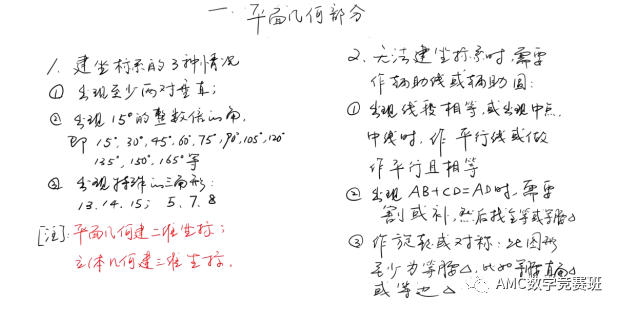 一. 平面几何部分
1. 建坐标系的3种情况
① 出现至少两对垂直;
② 出现15°的整数倍的角,
即 15°, 30°, 45°, 60°, 75°, 90°, 105°, 120°
135°, 150°, 165° 等
③ 出现特殊的三角形:
13. 14. 15; 5. 7. 8
[注]: 平面几何建二维坐标;
立体几何建三维坐标.
2. 无法建坐标系时, 需要
作辅助线或辅助圆:
① 出现线段相等, 或出现中点,
中线时, 作 平行线或做
作平行且相等
② 出现 AB+CD=AD时, 需要
割或补, 然后找全等或等腰△
③ 作旋转或对称: 此图形
至少为等腰△, 比如等腰直角△
或等边△
AMC数学竞赛班